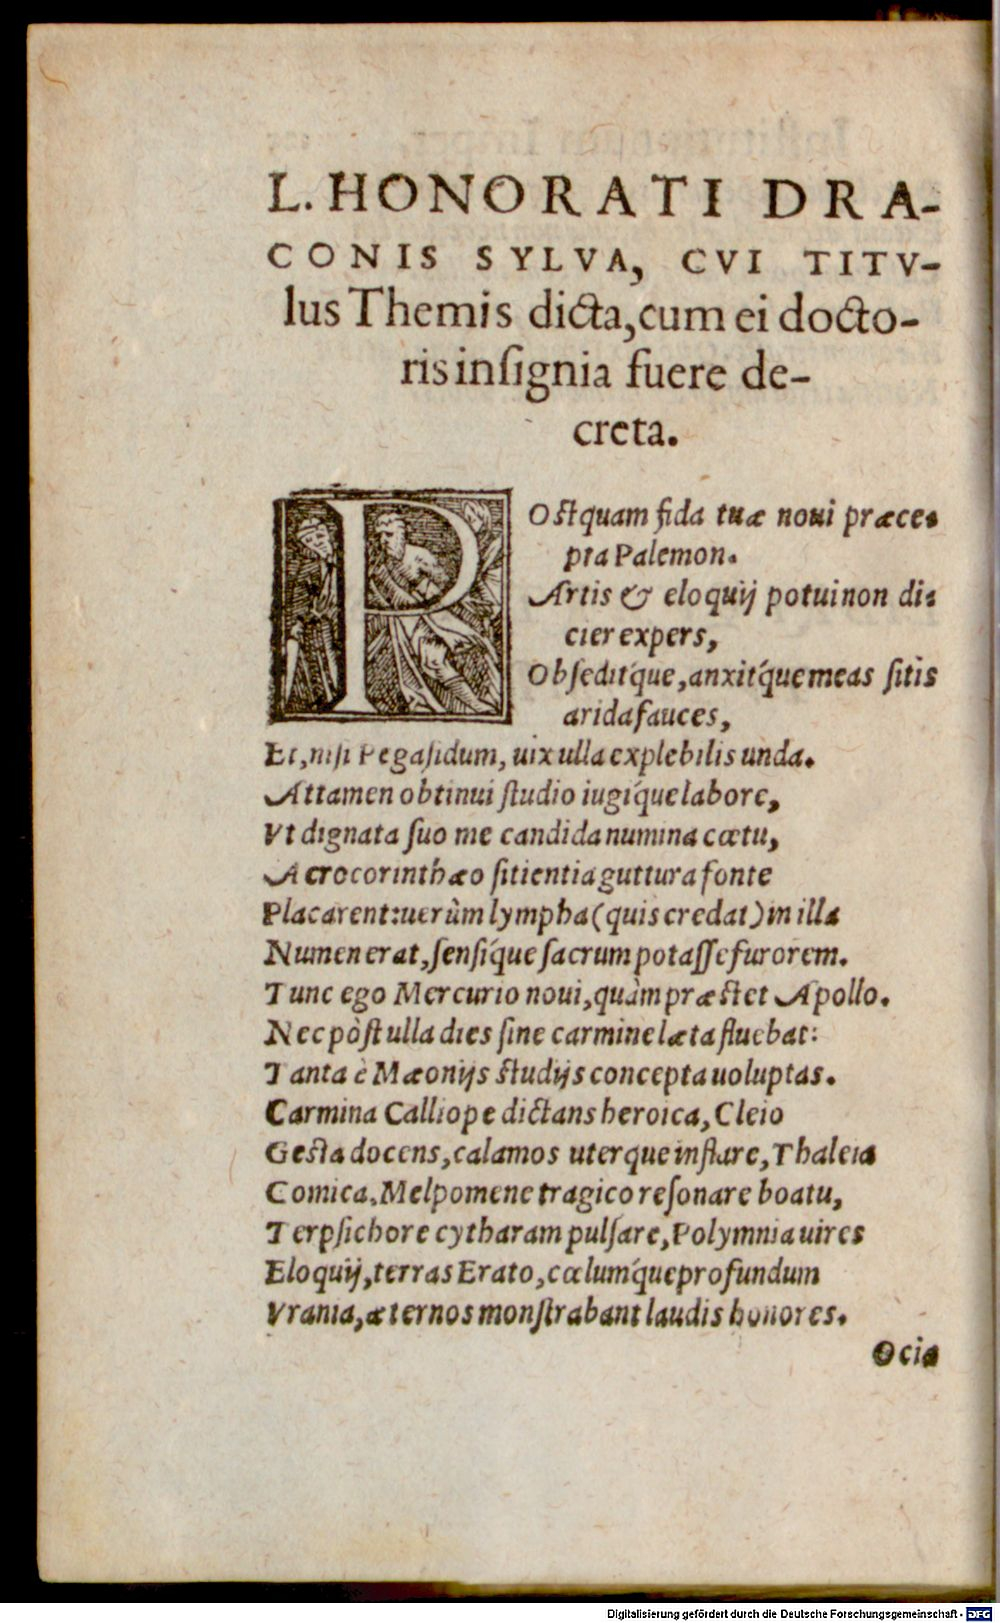 L. HONORATI DRA-
CONIS SYLVA, CVI TITV-
lus Themis dicta, cum ei docto-
ris inſignia fuere de-
creta.
POstquam fida tuæ noui præce-
pta Palemon.
Artis & eloquij potui non di-
cier expers,
Obſedit́que, anxit́que meas ſitis
arida fauces,
Et, niſi Pegaſidum, uix ulla explebilis unda.
Attamen obtinui ſtudio iugi´que labore,
Vt dignata ſuo me candida numina cœtu,
Acrocorinthæo ſitientia guttura fonte
Placarent: uerùm lympha (quis credat) in illa
Numen erat, ſenſi´que ſacrum potaſſe furorem.
Tunc ego Mercurio noui, quàm præstet Apollo.
Nec pòſt ulla dies ſine carmine læta fluebat:
Tanta è Mæonijs studijs concepta uoluptas.
Carmina Calliope dictans heroica, Cleio
Gesta docens, calamos uterque inflare, Thaleia
Comica, Melpomene tragico reſonare boatu,
Terpſichore cytharam pulſare, Polymnia uires
Eloquij, terras Erato, cœlum´que profundum
Vrania, æternos monſtrabant laudis honores.
Ocia
Digitalisierung gefördert durch die Deutsche Forschungsgemeinschaft - DFG